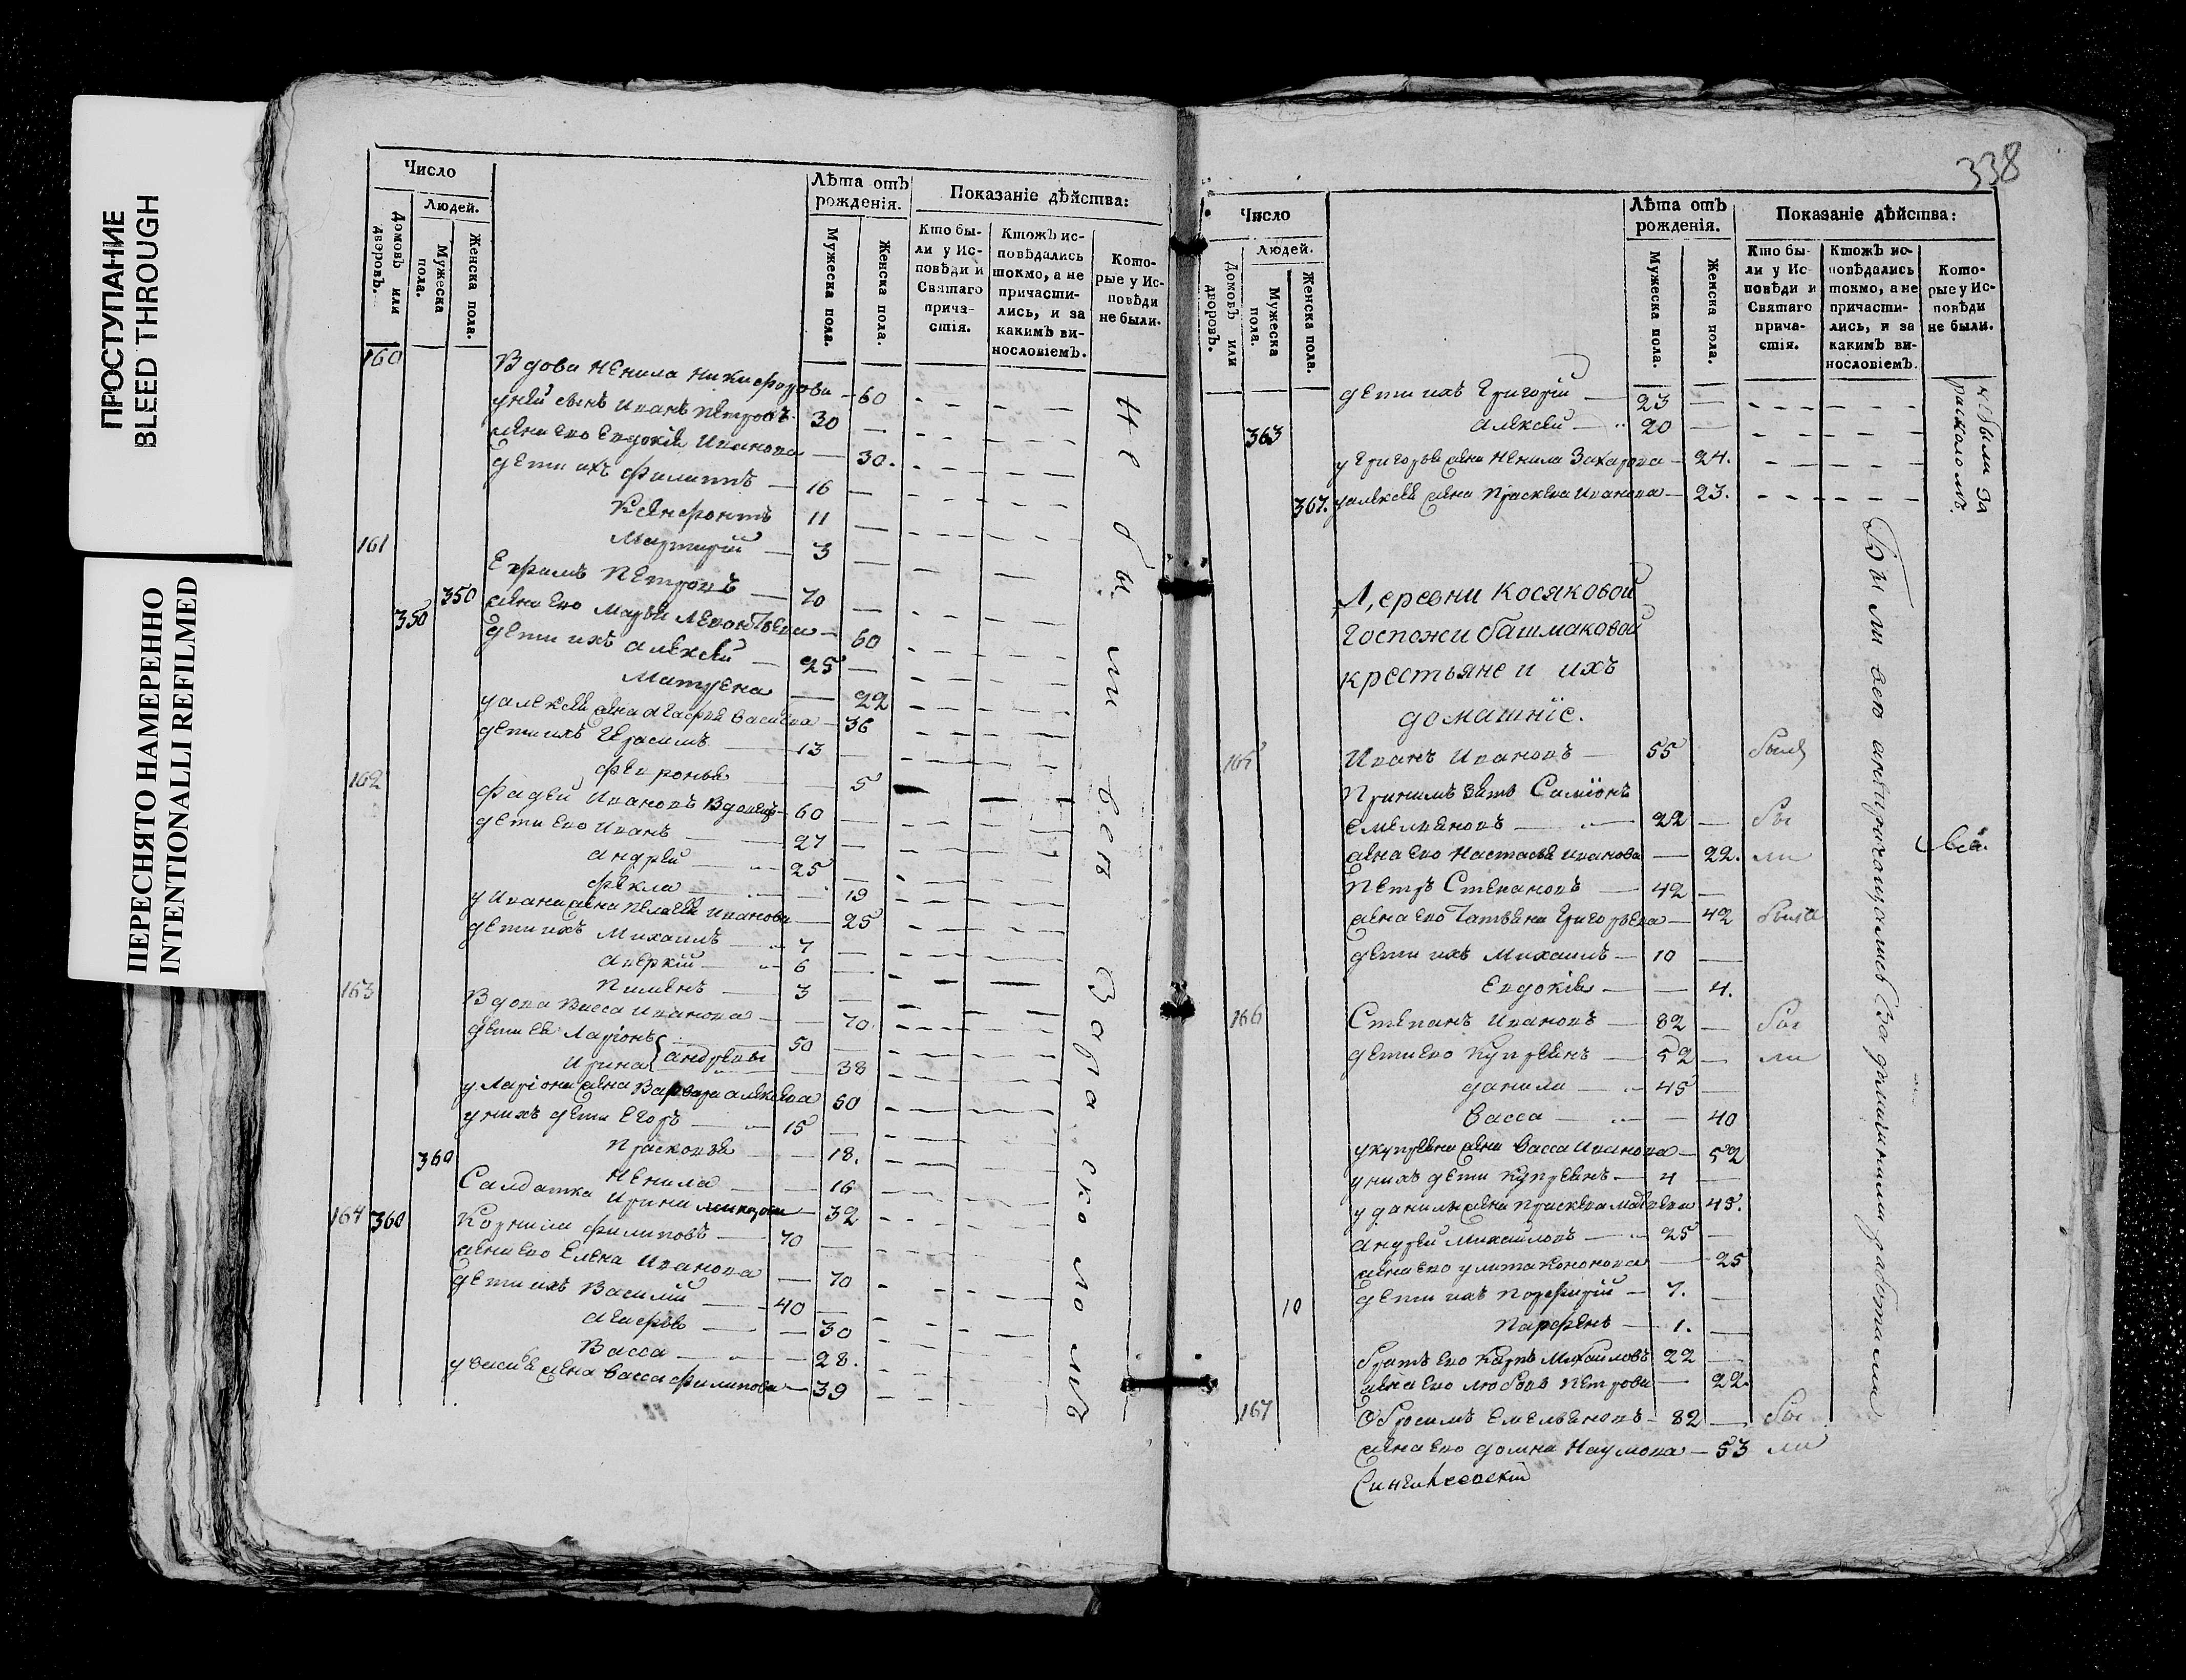 ПРОСТУПАНИЕ
BLEED THROUGH
ПЕРЕСНЯТО НАМЕРЕННО
INTENTIONALLI REFILMED
Число
Людей.
Домовъ или дворовъ.
Мужеска пола.
Женска пола.
Лѣта отъ рожденія.
Мужеска пола.
Женска пола.
Показаніе дѣйства:
Кто бы-
ли у Ис-
повѣди и
Святаго
прича-
стія.
Ктожъ ис-
повѣдались
токмо, а не
причасти-
лись, и за
какимъ ви-
нословіемъ.
Кото-
рые у Ис-
повѣди
не были.
160
Вдова Ненила Никифорова — 60
у ней сынъ Иванъ Петровъ 30 —
жена ево Евдокія Иванова — 30.
дети ихъ Филиппъ — 16 —
Ксенфонтъ 11 —
Мартирій — 3 —
161 Ефимъ Петровъ — 70 —
350 жена ево Марья Левонтьева — 60
350 дети ихъ Алексей — 25 —
Матрена — 22
у Алексея жена Агафья Васильева — 36
дети ихъ Герасимъ — 13 —
Февронья — 5
162 Фадей Ивановъ вдовецъ — 60 —
дети ево Иванъ — 27 —
Андрей — 25 —
Фекла — 19
у Ивана жена Пелагея Иванова — 25
дети ихъ Михаилъ — 7 —
Аверкій — 6 —
Пименъ — 3 —
163 Вдова Васса Иванова — 70.
дети ея Ларіонъ 50 —
Ирина Андреевы 38
у Ларіона жена Варвара Алексеева 50
у нихъ дети Егоръ — 15 —
Прасковья — 18.
360 Ненила — 16
Салдатка Ирина 32
164 360 Корнила Филиповъ — 70 —
жена ево Елена Иванова — 70
дети ихъ Василій — 40 —
Агафья — 30
Васса — 28.
у Василья жена Васса Филипова — 39
Не были все за расколомъ
338
Число
Людей.
Домовъ или дворовъ.
Мужеска пола.
Женска пола.
Лѣта отъ рожденія.
Мужеска пола.
Женска пола.
Показаніе дѣйства:
Кто бы-
ли у Ис-
повѣди и
Святаго
прича-
стія.
Ктожъ ис-
повѣдались
токмо, а не
причасти-
лись, и за
какимъ ви-
нословіемъ.
Кото-
рые у Ис-
повѣди
не были.
дети ихъ Григорій — 23 —
363 Алексей — 20 —
у Григорья жена Ненила Захарова — 24.
367. у Алексея жена Прасковья Иванова — 23.
не были за расколомъ.
Деревни Косяковой
Госпожи Башмаковой
крестьяне и ихъ
домашніе.
165 Иванъ Ивановъ — 55 былъ
Принятъ зять Саміонъ
Емельяновъ — 22 — бы
жена ево Настасья Иванова — 22. ли
Петръ Степановъ — 42 —
жена ево Татьяна Григорьева — 42 была
дети ихъ Михаилъ — 10 —
Евдокія — 4.
166 Степанъ Ивановъ — 82 — бы
дети ево Купреянъ — 52 — ли
Данила — 45 —
Васса — 40
у Купреяна жена Васса Иванова — 52
у нихъ дети Купреянъ — 4 —
у Данилы жена Прасковья Матвеева 45.
Андрей Михайловъ — 25 —
жена ево Улита Кононова — 25
10 дети ихъ Порфирій — 7. —
Парфенъ — 1. —
братъ ево Карпъ Михайловъ 22 —
жена ево Любовь Петрова — 22.
167 Обросимъ Емельяновъ — 82 — бы
жена ево Домна Наумова — 53 ли
все.